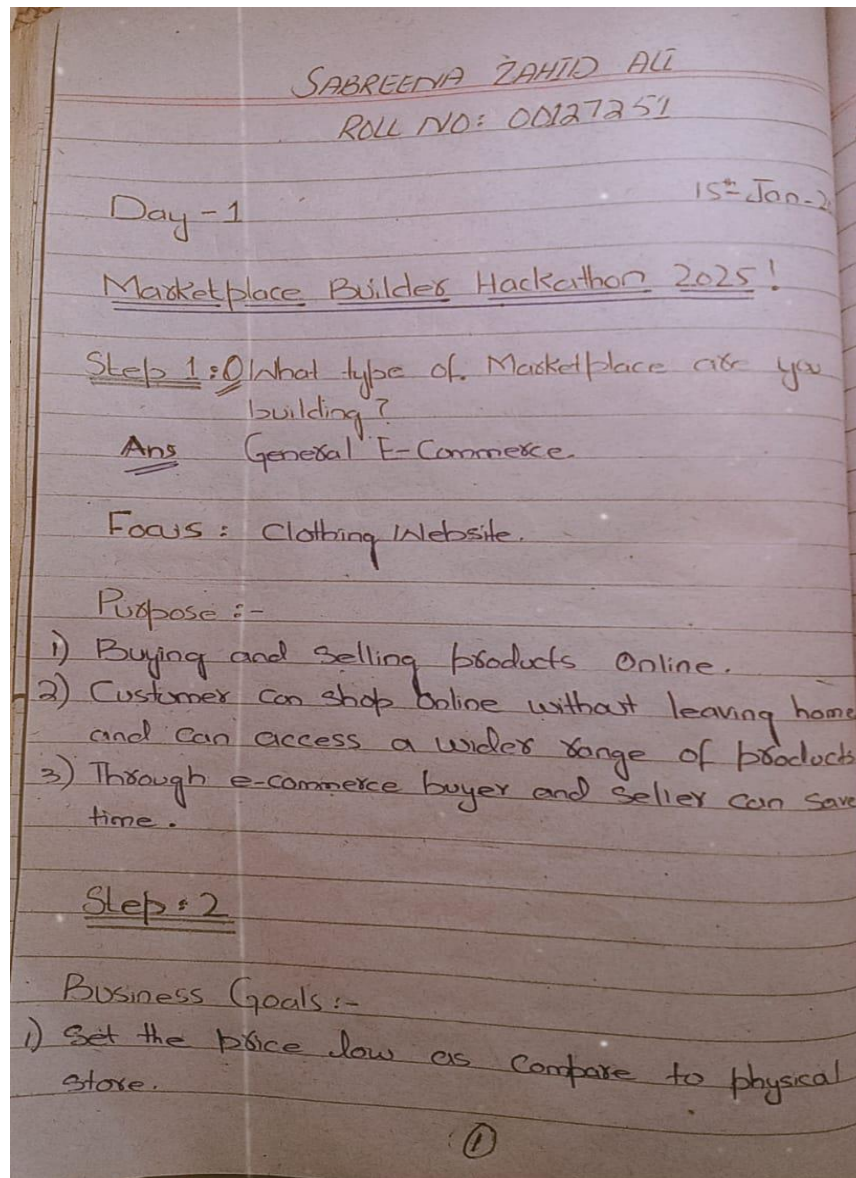 SABREENA ZAHID ALI
ROLL NO: 00127251
Day - 1
15th Jan-2
Marketplace Builder Hackathon 2025!
Step 1: Q What type of Marketplace are you
building?
Ans General E-Commerce.
Focus: Clothing Website.
Purpose :-
1) Buying and Selling products Online.
2) Customer can shop online without leaving home
and can access a wider range of products
3) Through e-commerce buyer and seller can save
time.
Step : 2
Business Goals :-
1) Set the price low as compare to physical
store.
1